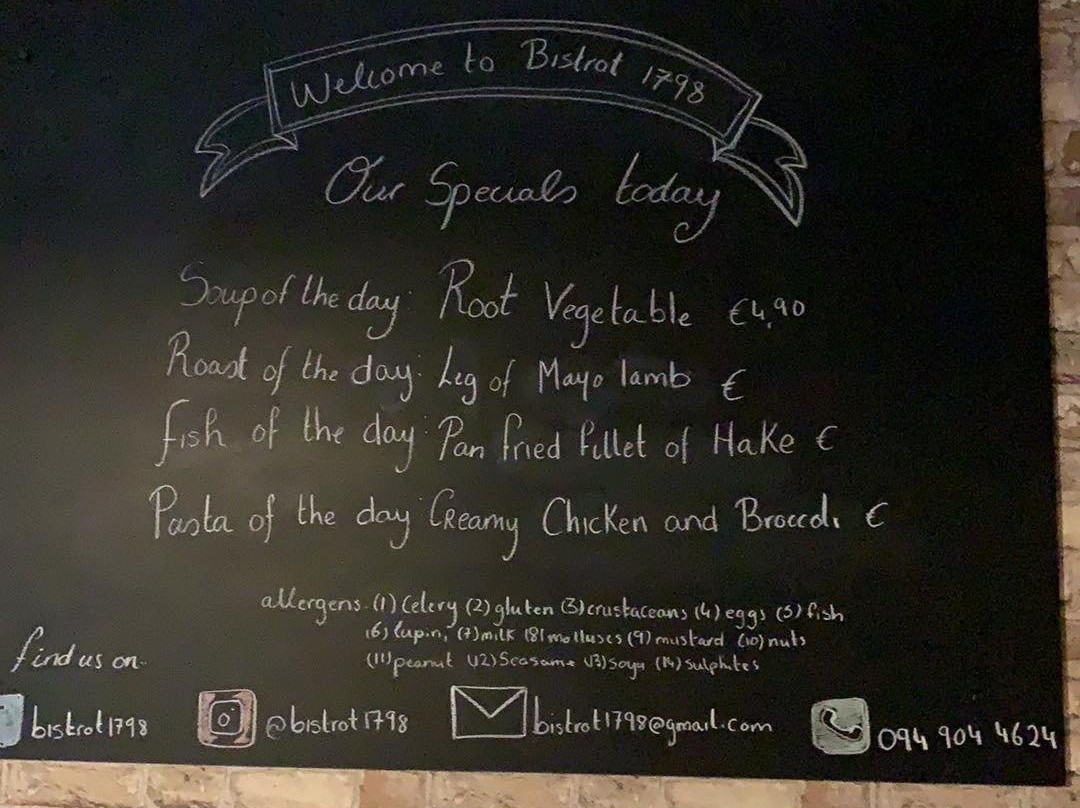 Welcome to Bistrot 1798
Our Specials today
Soup of the day: Root Vegetable €4,90
Roast of the day: Leg of Mayo lamb €
fish of the day: Pan fried fillet of Hake €
Pasta of the day: Creamy Chicken and Broccoli €
allergens. (1) Celery (2) gluten (3) crustaceans (4) eggs (5) fish
(6) lupin, (7) milk (8) molluscs (9) mustard (10) nuts
(11) peanut (12) Seasame (13) soya (14) sulphites
find us on-
bistrot1798 @bistrot1798 bistrot1798@gmail.com 094 904 4624